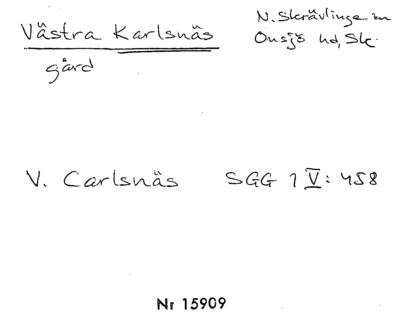 Västra Karlsnäs
gård
N. Skrävlinge sn
Onsjö hd, Sk.
V. Carlsnäs SGG 1 V: 458
Nr 15909